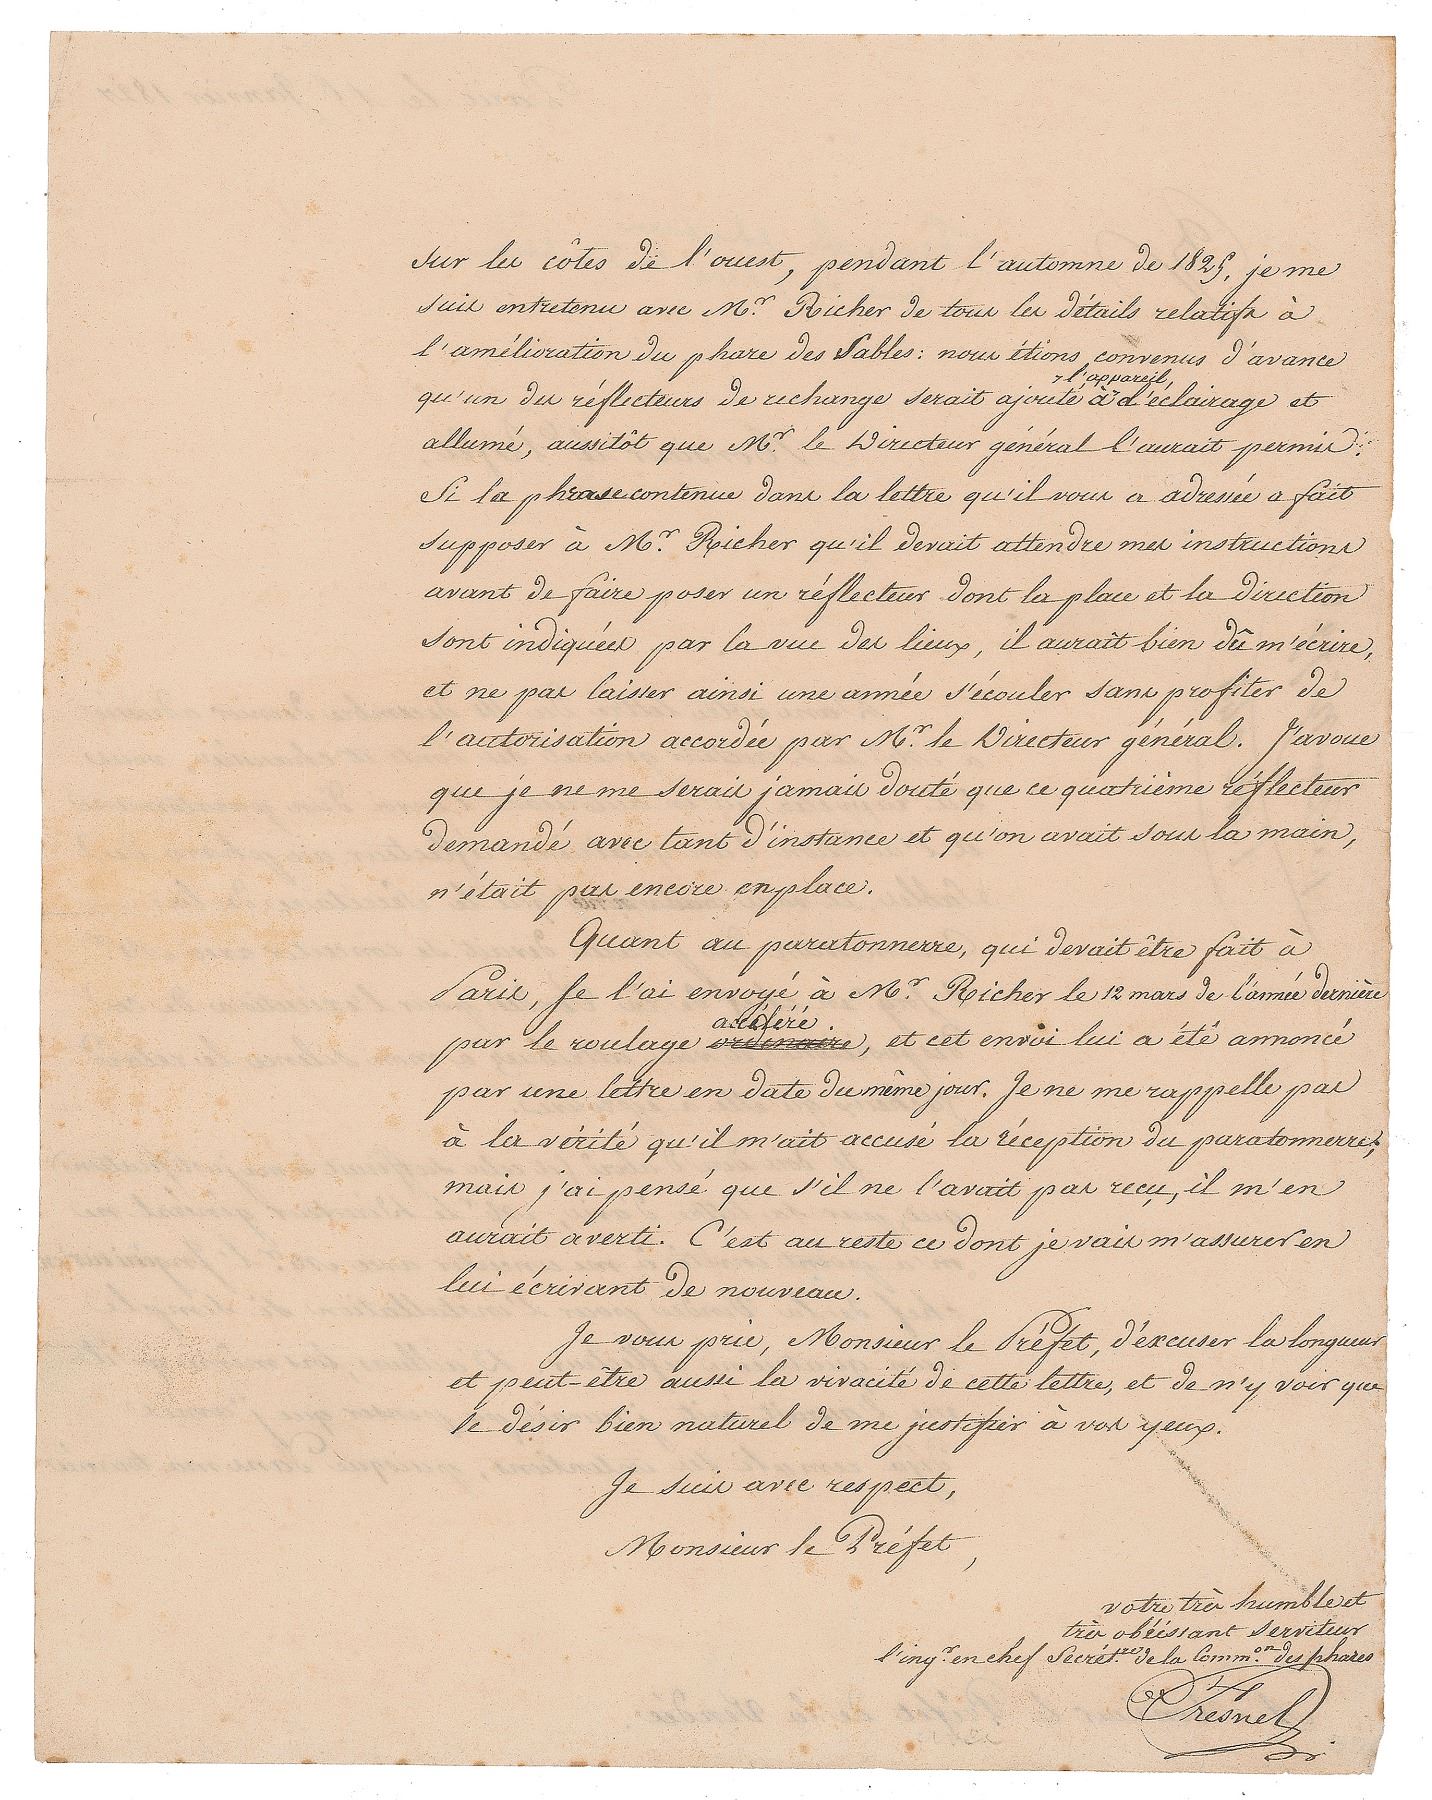 sur les côtes de l'ouest, pendant l'automne de 1825, je me
suis entretenu avec Mr. Richer de tous les détails relatifs à
l'amélioration du phare des Sables: nous étions convenus d'avance
l'appareil
qu'un des réflecteurs de rechange serait ajouté à d'éclairage et
allumé, aussitôt que Mr. le Directeur général l'aurait permis.
Si la phrase contenue dans la lettre qu'il vous a adressée a fait
supposer à Mr. Richer qu'il devait attendre mes instructions
avant de faire poser un réflecteur dont la place et la direction
sont indiquées par la vue des lieux, il aurait bien dû m'écrire,
et ne pas laisser ainsi une année s'écouler sans profiter de
l'autorisation accordée par Mr. le Directeur général. J'avoue
que je ne me serais jamais douté que ce quatrième réflecteur
demandé avec tant d'instance et qu'on avait sous la main,
n'était pas encore en place.
Quant au paratonnerre, qui devait être fait à
Paris, Je l'ai envoyé à Mr. Richer le 12 mars de l'année dernière
accéléré
par le roulage ordinaire, et cet envoi lui a été annoncé
par une lettre en date du même jour. Je ne me rappelle pas
à la vérité qu'il m'ait accusé la réception du paratonnerre;
mais j'ai pensé que s'il ne l'avait pas reçu, il m'en
aurait averti. C'est au reste ce dont je vais m'assurer en
lui écrivant de nouveau.
Je vous prie, Monsieur le Préfet, d'excuser la longueur
et peut-être aussi la vivacité de cette lettre, et de n'y voir que
le désir bien naturel de me justifier à vos yeux.
Je suis avec respect,
Monsieur le Préfet,
votre très humble et
très obéissant serviteur
l'ingr. en chef Secrét.re de la Comm.on des phares
Fresnel